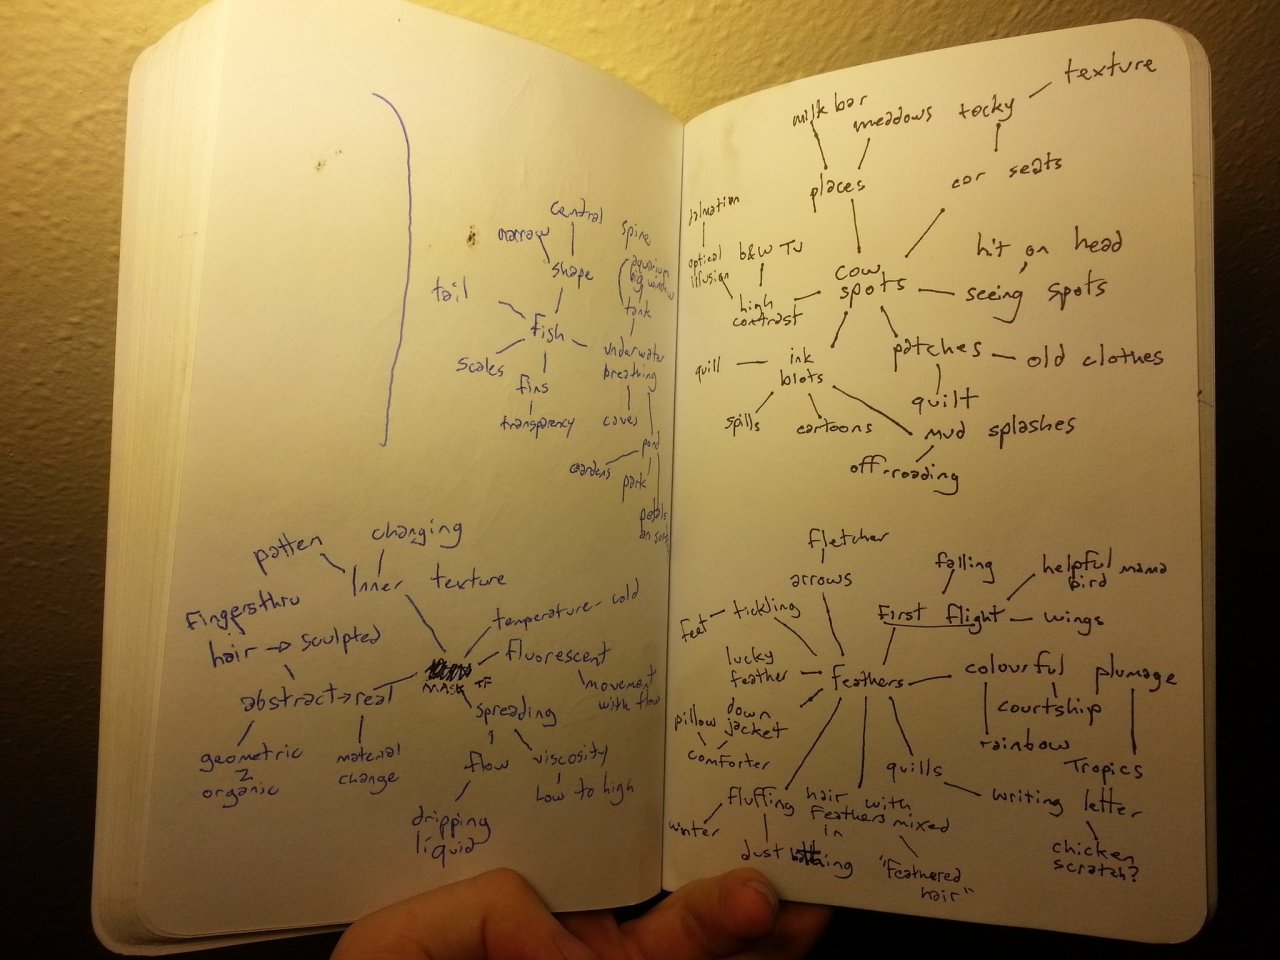 central
narrow
spine
shape
aquarium
big window
tail
tank
fish
underwater
breathing
scales
fins
transparency
caves
pond
gardens
park
petals
on
changing
patten
Inner texture
Fingers thru
hair → sculpted
temperature - cold
fluorescent
movement
with flow
MASK TF
abstract → real
spreading
geometric
2
organic
material
change
flow
viscosity
low to high
dripping
liquid
texture
milk bar
meadows
tocky
places
car seats
dalmation
optical
illusion
b&w TV
hit on head
cow
spots
seeing spots
high
contrast
patches
old clothes
quill
ink
blots
quilt
spills
cartoons
mud splashes
off-roading
fletcher
arrows
falling
helpful mama
bird
feet
tickling
First flight
wings
lucky
feather
Feathers
colourful
plumage
courtship
pillow
down
jacket
comforter
rainbow
Tropics
quills
writing letter
fluffing
hair with
feathers mixed
in
winter
dust bathing
"Feathered
hair"
chicken
scratch?